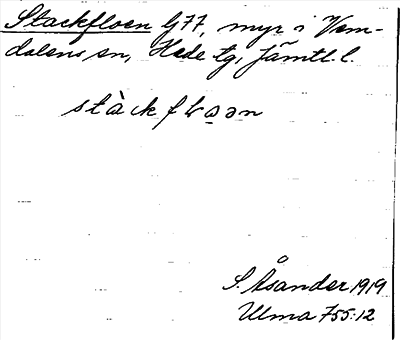 Stackfloen G77, myr i Vem-
dalens sn, Hede tg, Jämtl. l.
stàckflωən
S. Åsander 1919
Ulma 755:12